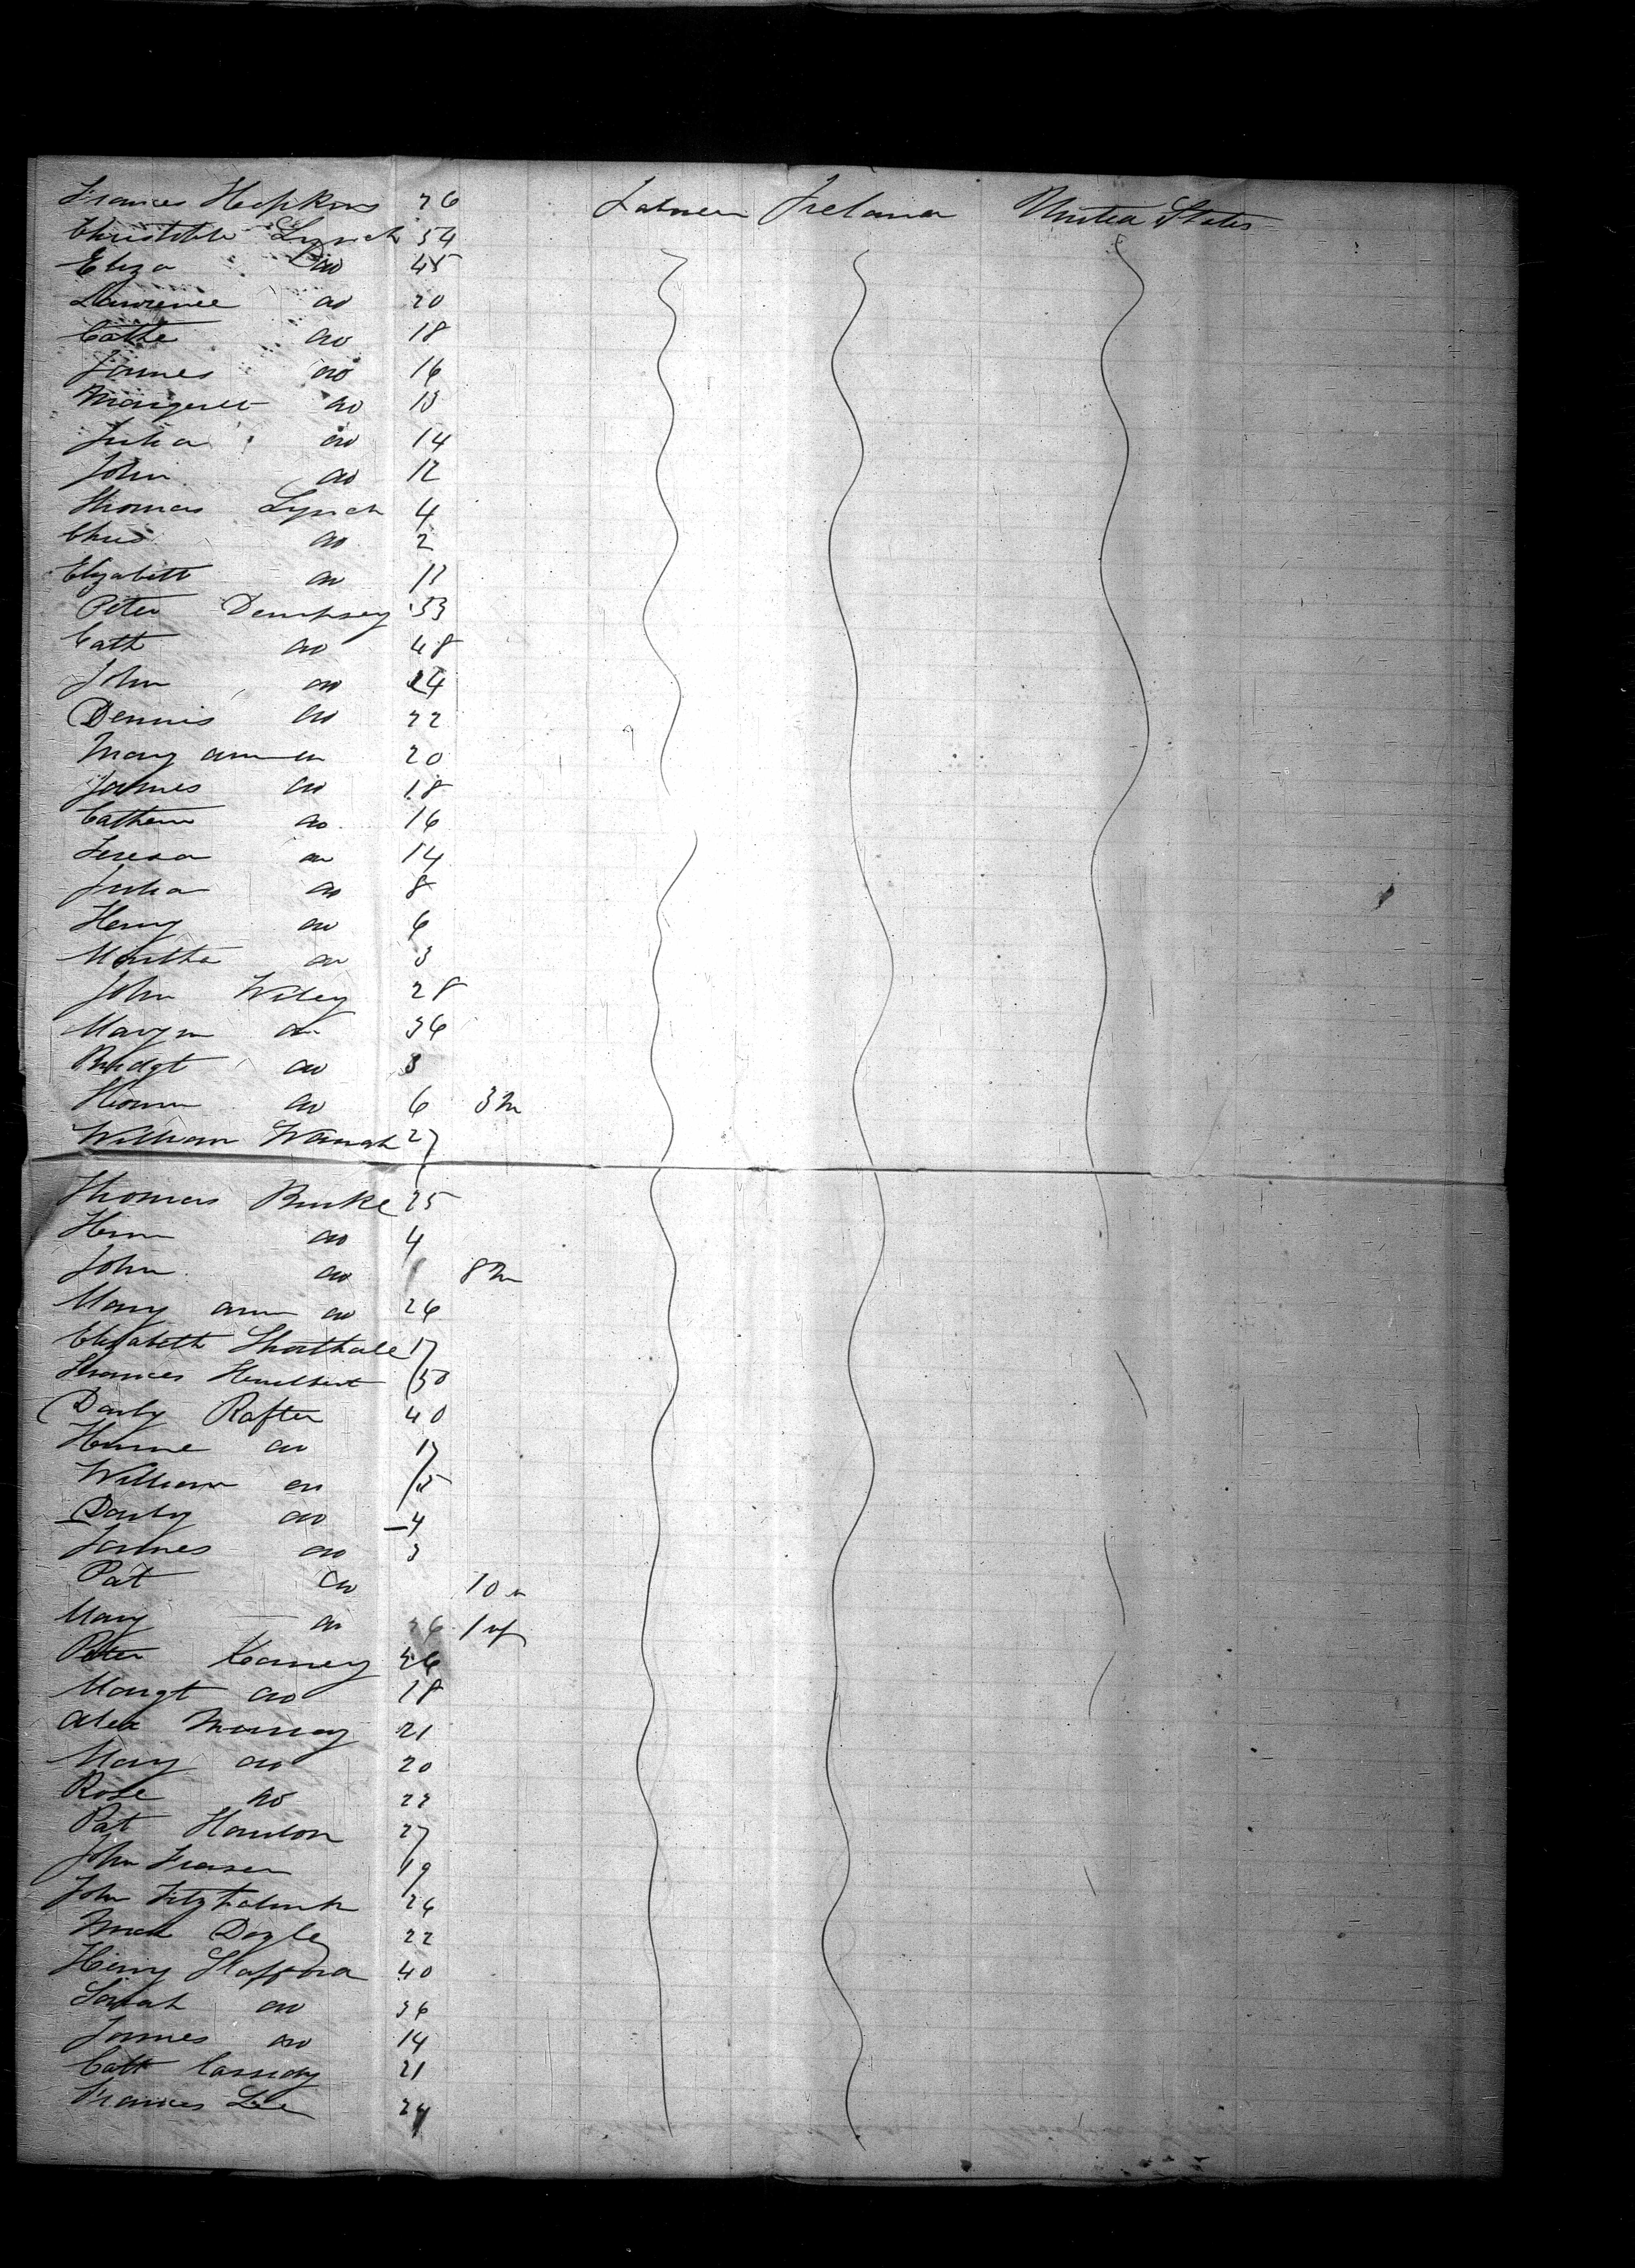 Frances Hopkins 26 Labourer Ireland United States
Lynch 54
Eliza Do 45
Lawrence do 20
Cathe do 18
James do 16
Margaret do 13
Julia do 14
John do 12
Thomas Lynch 4
Chris do 2
Elizabeth do 11
Peter Dempsey 53
Cath do 48
John do 24
Dennis do 22
Mary ann do 20
James do 18
Cathern do 16
Teresa do 14
Julia do 8
Henry do 6
Martha do 3
John Wiley 28
do 36
Bridgt do 3
do 6 3m
William 27
Thomas Burke 25
do 4
John do 8m
Mary ann do 26
Elizabeth Shorthall 17
Frances 30
Darby Rafter 40
do 17
William do 15
Darby do 4
James do 3
Pat do 10m
Mary do 36
Peter 26
Margt do 18
Alex Murray 21
Mary do 20
Rose do 22
Pat Hanlon 27
John 19
John 26
Doyle 22
Henry Stafford 40
Sarah do 36
James do 14
Cath Cassidy 21
Frances Lee 24